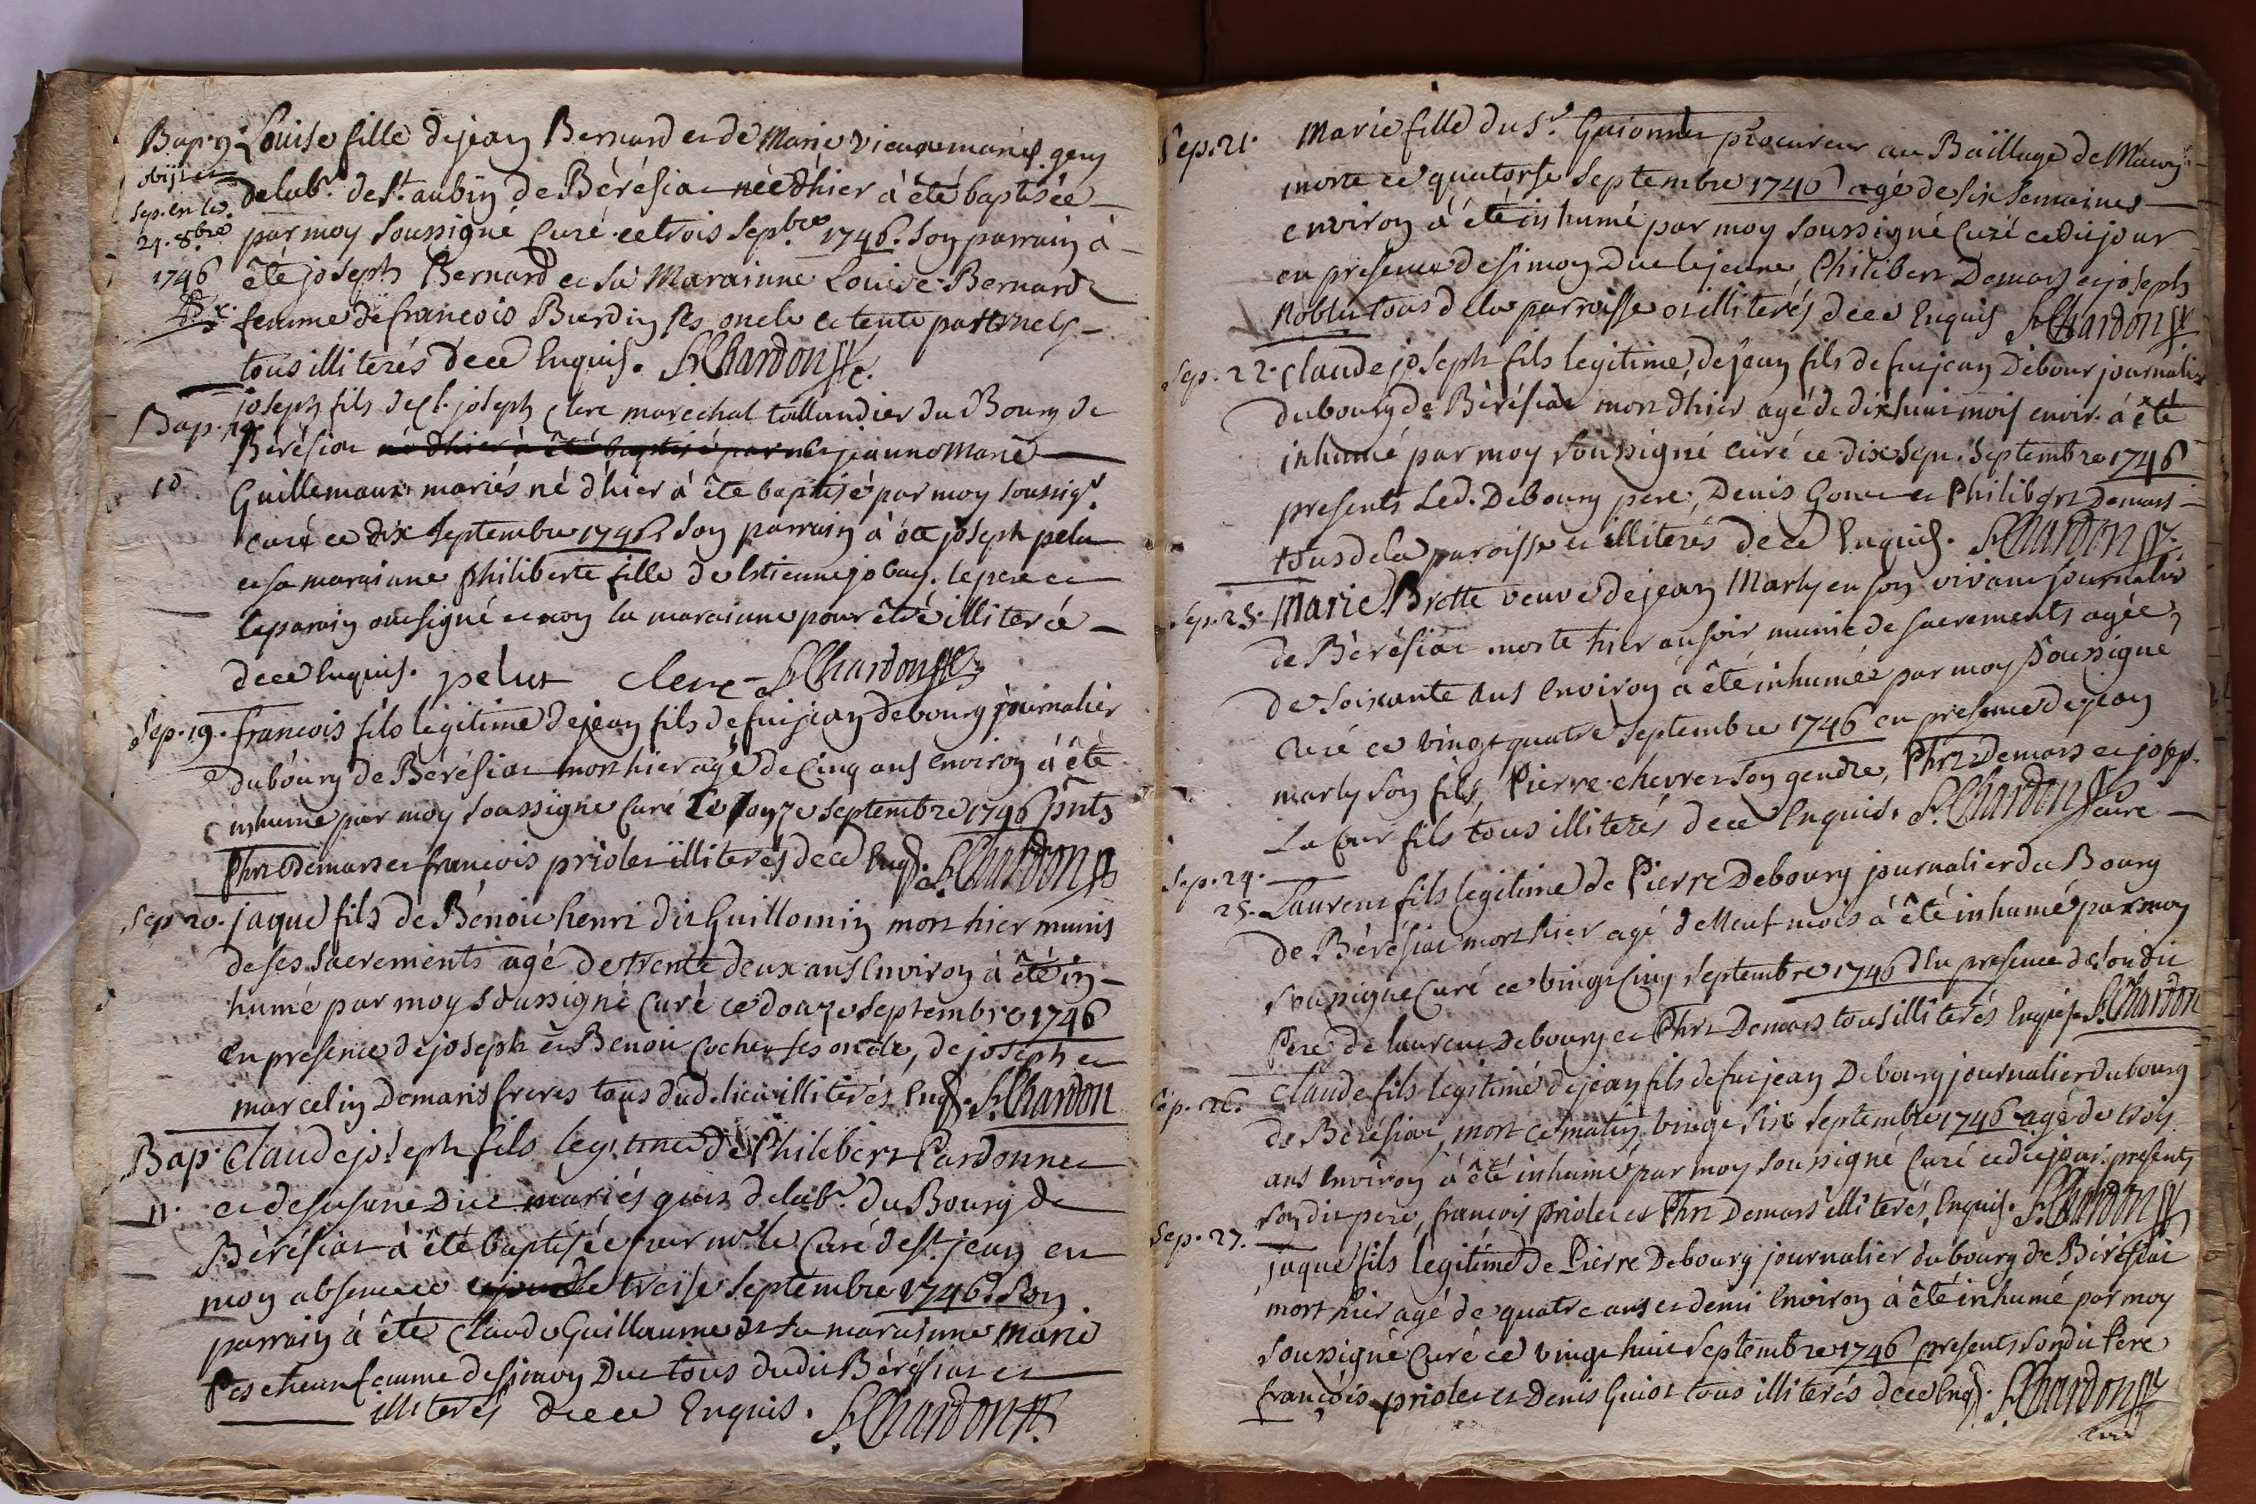 Bap. 9. Louise fille de jean Bernard et de Marie vieux mariés gens
obijt et
de lab.r de St. aubin de Bérésiat née d'hier à été baptisée
sep. en le
par moy soussigné Curé ce trois Sep.bre 1746. Son parrain à
24. 8.bre
1746
été joseph Bernard et sa Marainne Louise Bernard
femme de francois Burdin ses oncle et tente paternels
tous illiterés de ce Enquis. Chardon
joseph fils de Cl. joseph Clerc maréchal tallandier du Bourg de
Bap.
Bérésiat né d'hier à été baptisé par et jeanne Marie
10.
Guillemaux mariés né d'hier à été baptisé par moy soussig.é
Curé ce dix Septembre 1746 Son parrain à été joseph pelu
et sa marainne philiberte fille de Estienne joban. le pere et
le parain ont signé et non la marainne pour être illiterée
de ce Enquis. pelut Clerc Chardon
Sep. 19. francois fils legitime de jean fils de fut jean Debourg journalier
du bourg de Bérésiat mort hier agé de Cinq ans Environ à été
inhumé par moy soussigné Curé Ce onze Septembre 1746 pnts
Phrt Demars et francois priolet illiterés de ce Enq. Chardon
Sep. 20. jaque fils de Bénoit henri dit Guillomin mort hier munis
de ses Sacrements agé de trente deux ans Environ à été in-
humé par moy soussigné Curé ce douze Septembre 1746
En presence de joseph et Benoit Cochet ses oncle, de joseph et
marcelin Demaris freres tous dud. lieu illiterés Enq. Chardon
Bap. Claude joseph fils legitime de Philibert Cardonnet
11. et de susane Duc mariés gens de lab.r du Bourg de
Bérésiat à été baptisée par mr. le Curé de St. jean en
mon absence ce jourd le treise Septembre 1746. Son
parrain à été Claude Guillaume et sa marainne Marie
femme de simon Duc tous dudit Bérésiat et
illiterés de ce Enquis. Chardon
Sep. 21. Marie fille du Sr. Guionnet procureur au Baillage de
morte ce quatorse Septembre 1746 agé de six semaines
environ à été inhumé par moy soussigné Curé cedit jour
en presence de simon Duc le jeune, Philibert Demars et joseph
Noblet tous de la parroisse et illiterés de ce Enquis Chardon
Sep. 22. Claude joseph fils legitime de jean fils de fut jean Debour journalier
du bourg de Bérésiat mort d'hier agé de dix huit mois envir. à été
inhumé par moy soussigné curé ce dix Sept. Septembre 1746
presents Led. Debourg pere, Denis Gonet et Philibert Demars
tous de la paroisse et illiterés de ce Enquis. Chardon
Sep. 23. Marie Brette veuve de jean Marly en son vivant journalier
de Bérésiat morte hier au soir munie de sacrements agée
de Soixante ans Environ à été inhumée par moy Soussigné
Curé ce vingt quatre Septembre 1746 en presence de jean
marly son fils, Pierre chevret son gendre, Phrt Demars et josep.
La Cour fils tous illiterés de ce Enquis. Chardon curé
Sep. 24.
25. Laurent fils legitime de Pierre Debourg journalier du Bourg
de Bérésiat mort hier agé de Neuf mois à été inhumé par moy
soussigné Curé ce vingt Cinq Septembre 1746 En presence de Son dit
Pere de laurent Debourg et Phrt Demars tous illiterés Enquis Chardon
Sep. 26. Claude fils legitime de jean fils de fut jean Debourg journalier du bourg
de Bérésiat, mort ce matin vingt Six Septembre 1746 agé de trois
ans Environ à été inhumé par moy soussigné Curé cedit jour. presents
son dit pere, francois priolet et Phrt Demars illiterés Enquis. Chardon
Sep. 27.
jaque fils legitime de Pierre Debourg journalier du bourg de Bérésiat
mort hier agé de quatre ans et demi Environ à été inhumé par moy
soussigné Curé ce vingt huit Septembre 1746 presents Son dit Pere
françois priolet et Denis Guiot tous illiterés de ce Enq. Chardon
Curé